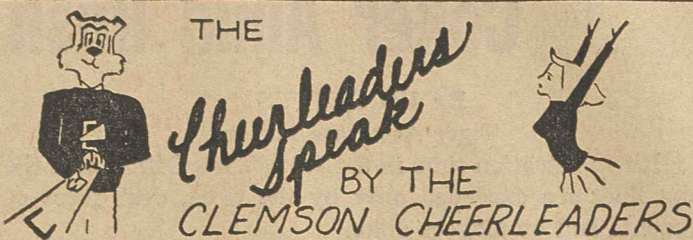 THE
Cheerleaders
Speak
BY THE
CLEMSON CHEERLEADERS